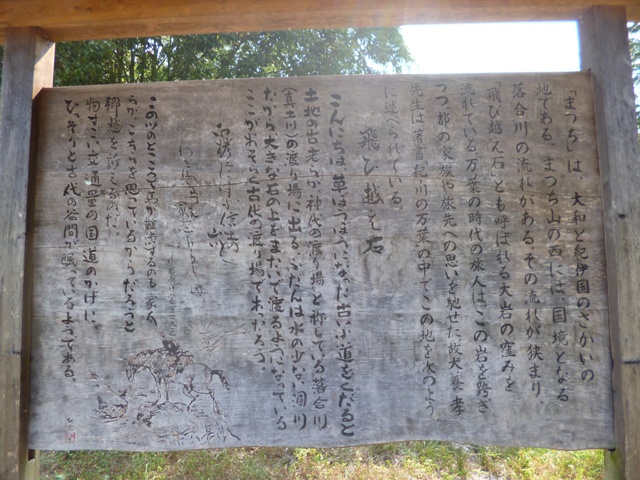 「まつち」は、大和と紀伊国のさかいの
地である。まつち山の西には、国境となる
落合川の流れがある。その流れが狭まり、
「飛び越え石」とも呼ばれる大岩の窪みを
流れている。万葉の時代の旅人は、この岩を跨ぎ
つつ、都の家族や旅先への思いを馳せた。故犬養孝
先生は著書「紀ノ川の万葉」の中でこの地を次のよう
に述べられている。
飛び越え石
こんにちは草ぼうぼうになった古い小道をくだると
土地の古老らが、神代の渡り場と称している落合川
(真土川)の渡り場に出る。ふだんは水の少ない涸川
だから大きな石の上をまたいで渡るようになっている
ここがおそらく古代の渡り場であろう。
白栲に にほふ信土の
山川に
わが馬なづむ 家恋ふらしも
このいのところで馬が難渋するのも、家人
らが、こちらを思っているからだろうと
郷愁を訴えるのだ。
物すごい交通量の国道のかげに、
ひっそりと古代の谷間が眠っているようである。